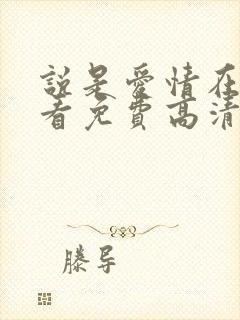 說是愛情在
看免費高清
滕导